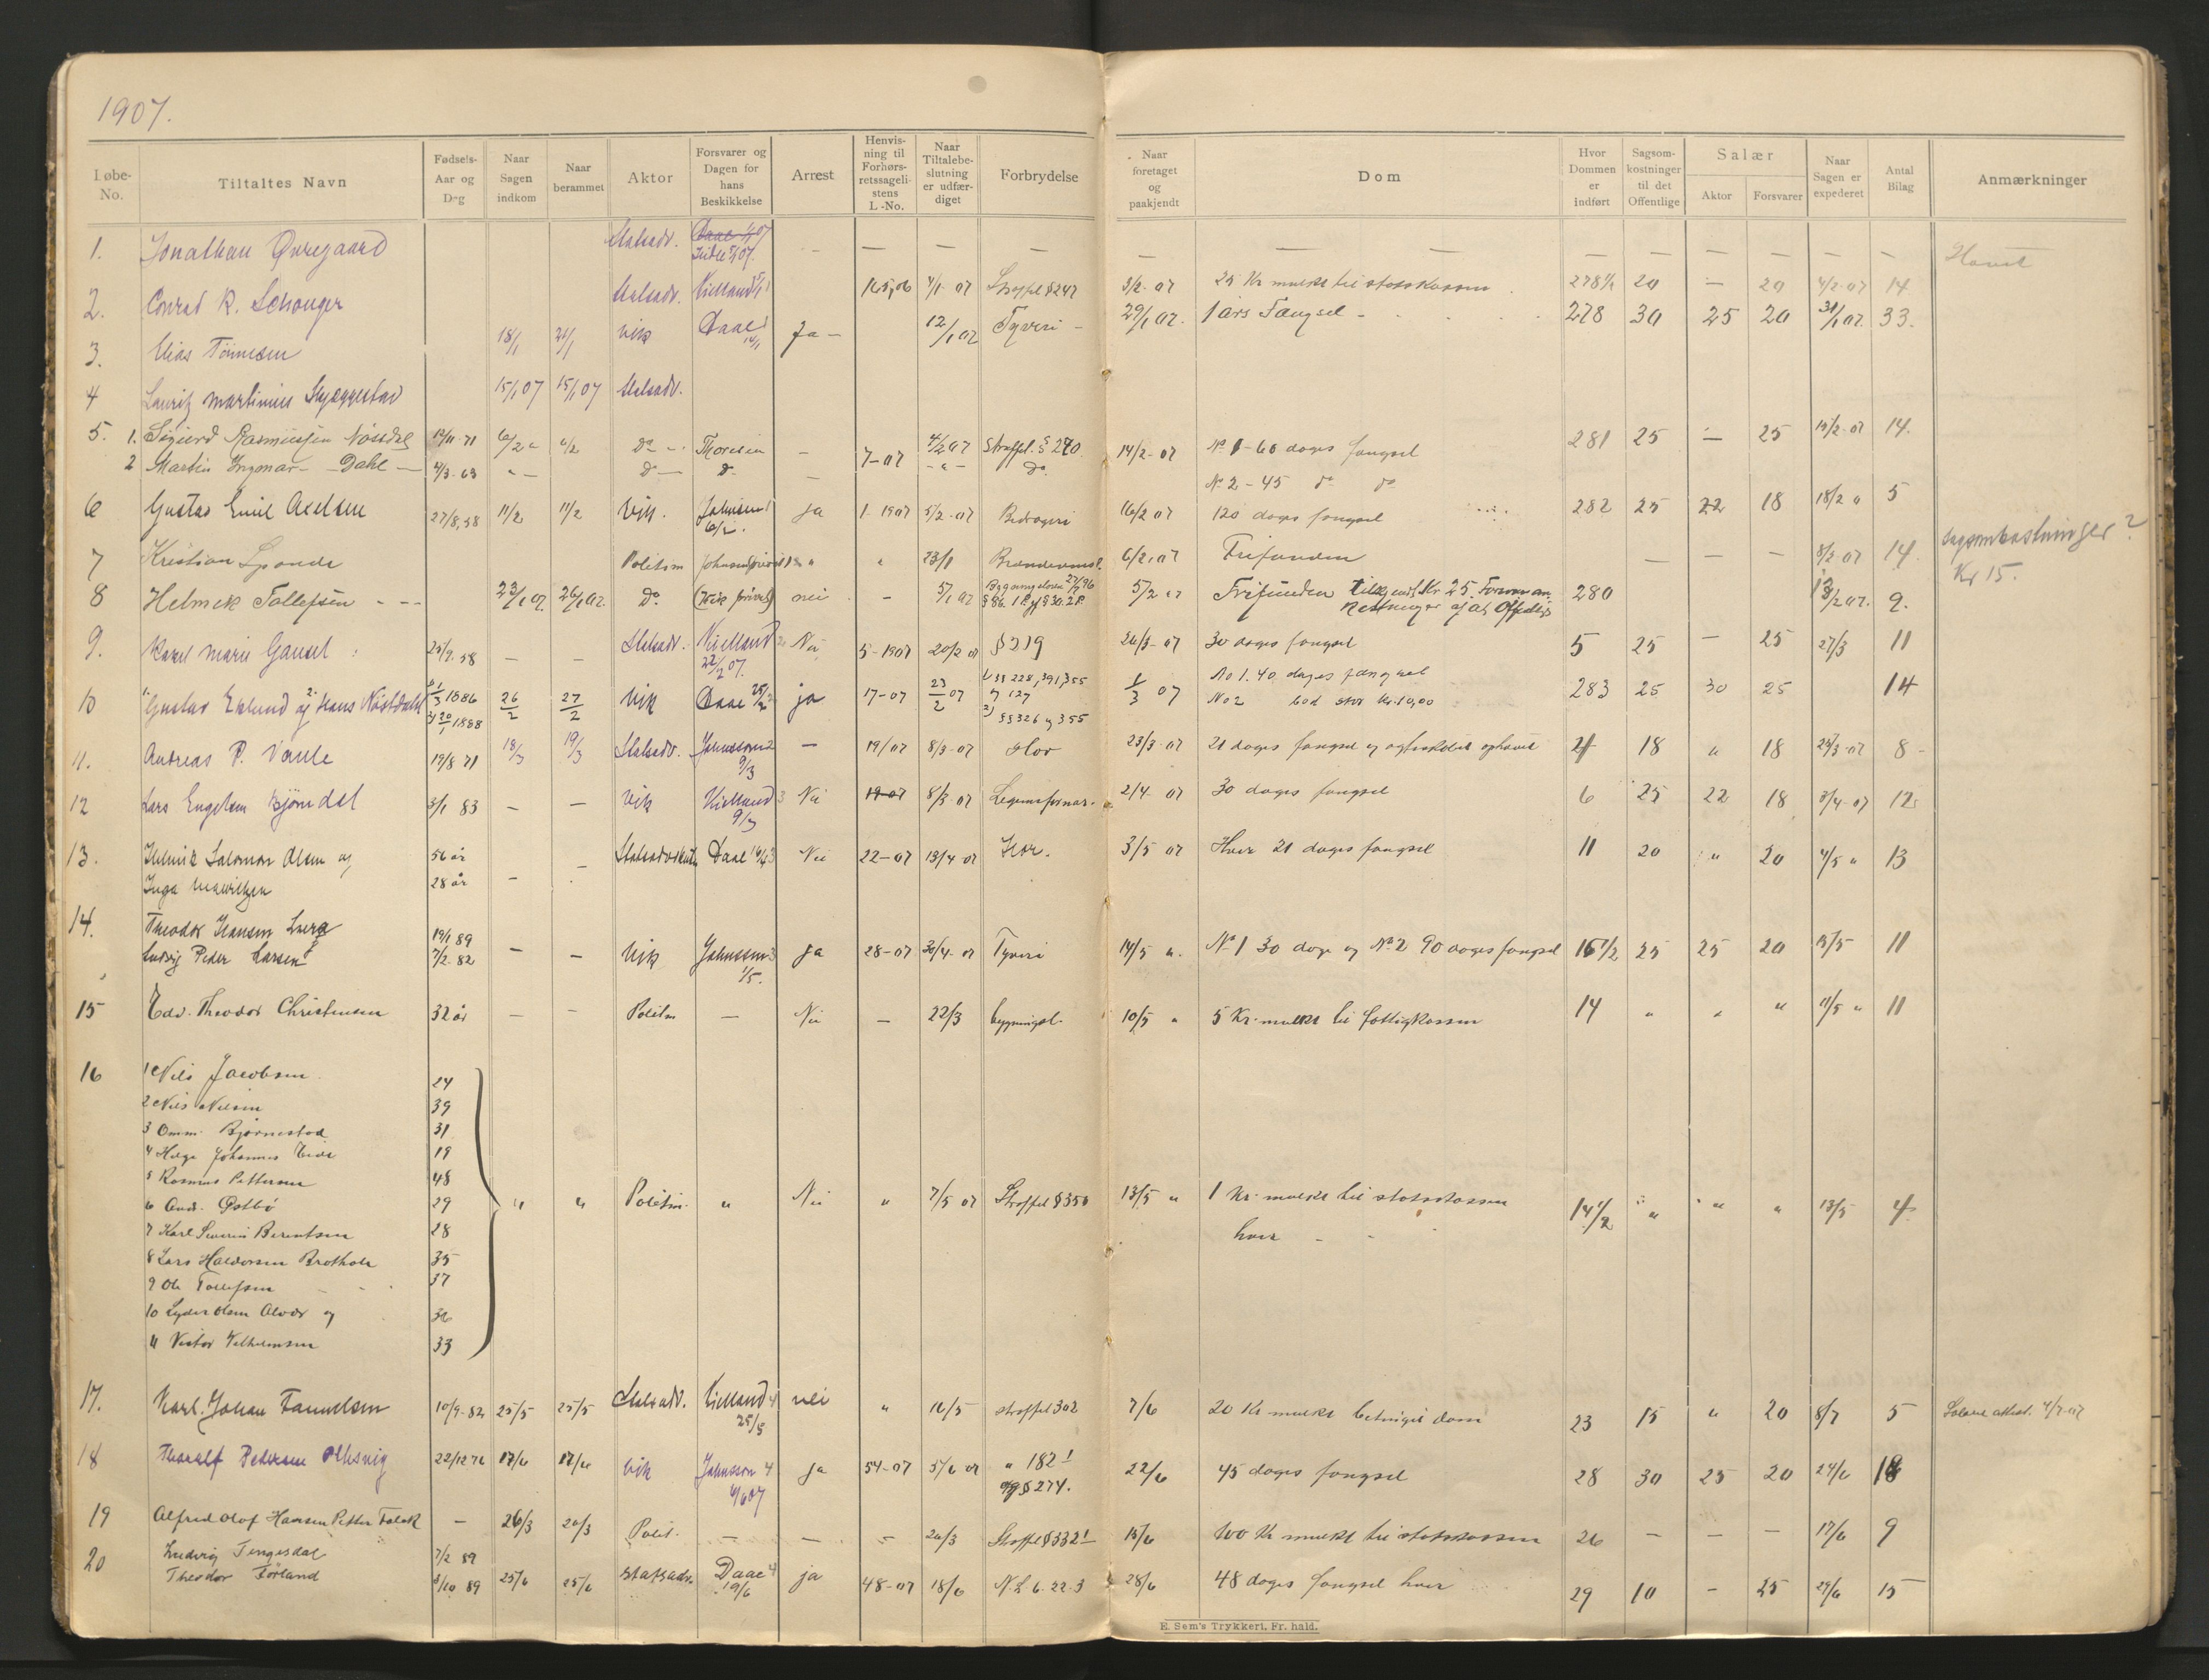 1907.
Løbe-No. Tiltaltes Navn Fødsels-Aar og Dag Naar Sagen indkom Naar berammet Aktor Forsvarer og Dagen for hans Beskikkelse Arrest Henvisning til Forhørsretssagelistens L.-No. Naar Tiltalebeslutning er udfærdiget Forbrydelse Naar foretaget og paakjendt Dom Hvor Dommen er indført Sagsomkostninger til det Offentlige Salær Aktor Forsvarer Naar Sagen er expederet Antal Bilag Anmærkninger
1. Jonathan Øvregaard Statsadv. — — — — — — — — — — — — Hævet
2. Conrad R. Schanger Statsadv. Kielland 165,06 4/1-07 Straffel. §247 3/2-07 25 Kr mulkt til statskassen 278 1/2 20 — 20 4/2-07 14
3. Elias Tönnesen 18/1 21/1 Vik Daae 14/1 Ja — 12/1 07 Tyveri — 29/1 07. 1 års Fængsel 278 30 25 20 31/1 07. 33.
4 Lauritz Martinius Skjæggestad 15/1 07 15/1 07 Statsadv.
5. 1. Sigurd Rasmussen Nøssdal 12/11-71 6/2 " 6/2 Do Thoresen — 7-07 4/2 07 Straffel. §270. 14/2-07 No 1-60 dages fængsel 281 25 — 25 15/2-07 14.
2 Martin Ingmar — Dahl — 4/3-63 " — do — do — — " — Do No 2-45 do do
6 Gustav Emil Axelsen 27/8,58 11/2 11/2 Vik. Johnsen 6/2. ja 1-1907 5/2-07 Bedrageri 16/2 07 120 dages fængsel 282 25 22 18 18/2 " 5
7 Kristian Spande Politim " " 23/1 6/2,07 Frifunden — — — 8/2 07 14. Sagsomkostninger?
Kr 15.
8 Helmik Tollefsen — — 23/1 07. 26/1 07. Do (Vik privat) nei — 5/1 07 §86. 1 P. jf §30. 2 P. 5/2 07 Frifunden tilkjendt Kr. 25. 280 13/2 07. 9.
af det Offentlige
9. Karel Marie Gausel 25/9.58 — — Statsadv. Kielland 22/2 07. Nei 5-1907 20/2 07 §219 26/3-07 30 dages fængsel 5 25 — 25 27/3 11
10 1. Gustav Eklund og 2. Hans Nöstdahl 1886 1888 26/2 27/2 Vik Daae 25/2 ja 17-07 23/2 07 1) §§ 228, 391, 355 og 127 1/3 07 No 1. 40 dages fængsel 283 25 30 25 14
2) §§326 og 355 No 2 bod stor Kr. 10,00
11. Andreas P. Vaule 19/8 71 18/3 19/3 Statsadv. Johnsson 9/3 — 19/07 8/3-07 Hor 23/3-07 21 dages fængsel og egteskabet ophævet 4 18 " 18 8-
12 Lars Engelsen Bjørndal 3/1 83 — — Vik Kielland 9/3 Nei 19-07 8/3 07 Legemsfornær. 2/4 07 30 dages fængsel 6 25 22 18 3/4-07 12
13. Helmik Salomon Olsen og 56 år — Statsadvokaten Daae Nei 22-07 13/4 07 Hor. 3/5 07 Hver 21 dages fængsel 11 20 " 20 4/5 " 13
Inga Mauritzen 28 år —
14. Theodor Hansen Lura 19/1 89
Ludvig Peder Larsen 7/2.82 — — Vik Johnsson 1/5. ja 28-07 30/4-07 Tyveri 14/5 ". No 1 30 dage og No 2 90 dages fængsel 15 1/2 25 25 20 15/5 11
15 Edv. Theodor Christensen 32 år — — Politim — Nei — 22/3 bygningsl. 10/5 " 5 Kr. mulkt til fattigkassen 14 " " " 11/5 " 11
16 1 Nils Jacobsen 24
2 Nils Nilsen 39
3 Omm. Bjørnestad 31
4 Helge Johannes Eide 19
5 Rasmus Pettersen 48
6 And. Østbø 29 " " Politim. " Nei " 7/5 07 Straffel. §350 13/5 " 1 Kr. mulkt til statskassen 14 1/2 " " " 13/5 4
7 Karl Severin Berentsen 28 hver
8 Lars Haldorsen 35
9 Ole Tollefsen 37
10 Lyder Olsen og 36
11 Victor Vilhelmsen 33
17. Karl Johan 10/9-82 25/5 25/5 Statsadv. Kielland 4 25/5 nei " 16/5 straffel 302 7/6 20 Kr mulkt betinget dom 23 15 " 20 8/7 5
18 Tharalf Pedersen 22/12 76 17/6 17/6 Vik Johnsson 4 6/6 07 ja 54-07 5/6 07 " 182 1 og §274. 22/6 45 dages fængsel 28 30 25 20 24/6
19 Alfred Olof Hansen Petter Falck — 26/3 26/3 Polit. — — — 20/3 Straffel §332 1 15/6 100 Kr mulkt til statskassen 26 — — — 17/6 9
20 Ludvig Tengesdal 7/2 89
Theodor Førland 8/10 89 25/6 25/6 Statsadv. Daae 4 19/6 ja 48-07 18/6 N. L. 6-22-3 28/6 48 dages fængsel hver 29 10 — 25 29/6 15
E. Sem's Trykkeri, Fr. hald.